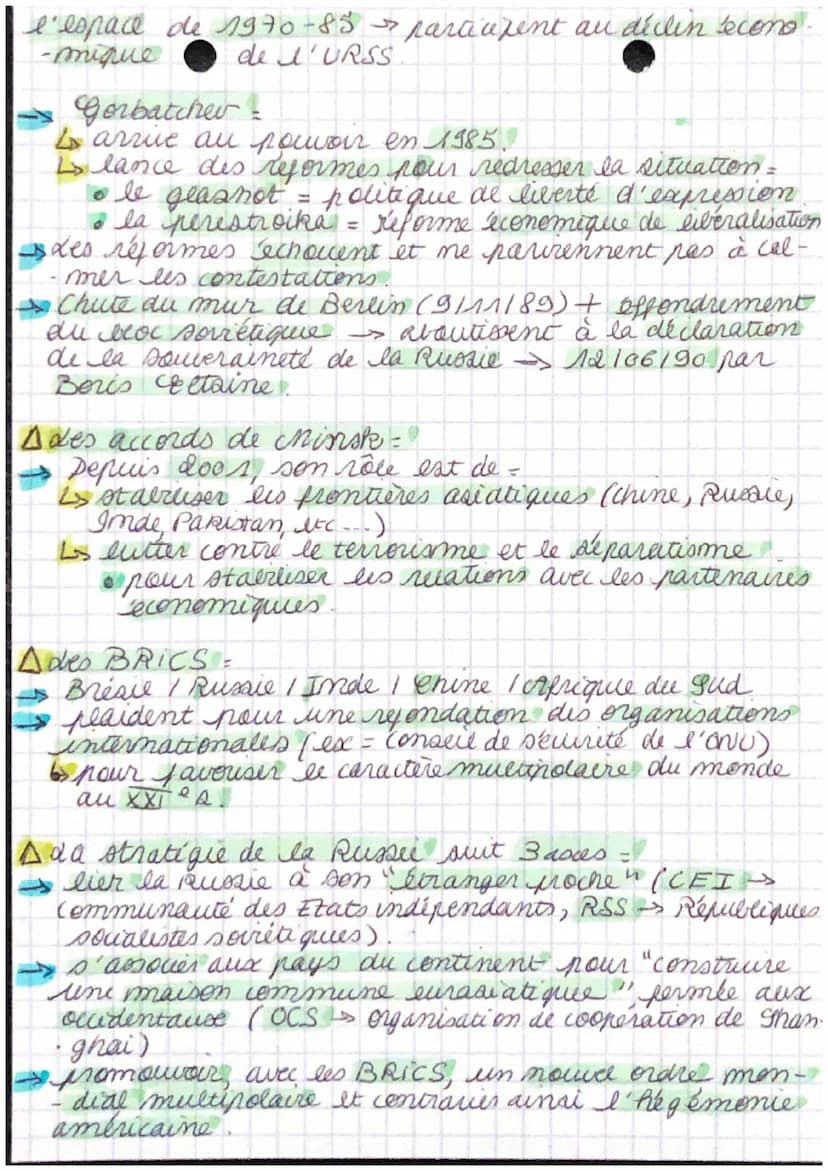 l'espace de 1970-85 → participent au déclin écono-
-mique de l'URSS
→ Gorbatchev =
↳ arrive au pouvoir en 1985.
↳ lance des réformes pour redresser la situation =
• le glasnot = politique de liberté d'expression
• la perestroika = réforme économique de libéralisation
→ Les réformes échouent et ne parviennent pas à cal-
-mer les contestations.
→ Chute du mur de Berlin (9/11/89) + effondrement
du bloc soviétique → aboutissent à la déclaration
de la souveraineté de la Russie → 12/06/90 par
Boris Eltsine.
Δ Les accords de Minsk =
→ Depuis 2001, son rôle est de =
↳ stabiliser les frontières asiatiques (Chine, Russie,
Inde, Pakistan, etc ...)
↳ lutter contre le terrorisme et le séparatisme
• pour stabiliser les relations avec les partenaires
économiques.
Δ Les BRICS =
→ Brésil / Russie / Inde / Chine / Afrique du Sud
→ plaident pour une refondation des organisations
internationales (ex = conseil de sécurité de l'ONU)
↳ pour favoriser le caractère multipolaire du monde
au XXI e s.
Δ La stratégie de la Russie suit 3 axes =
→ lier la Russie à son "étranger proche" (CEI →
Communauté des Etats indépendants, RSS → Républiques
socialistes soviétiques).
→ s'associer aux pays du continent pour "construire
une maison commune eurasiatique", fermée aux
occidentaux (OCS → organisation de coopération de Shan-
-ghai)
→ promouvoir, avec les BRICS, un nouvel ordre mon-
-dial multipolaire et contrarier ainsi l'hégémonie
américaine.